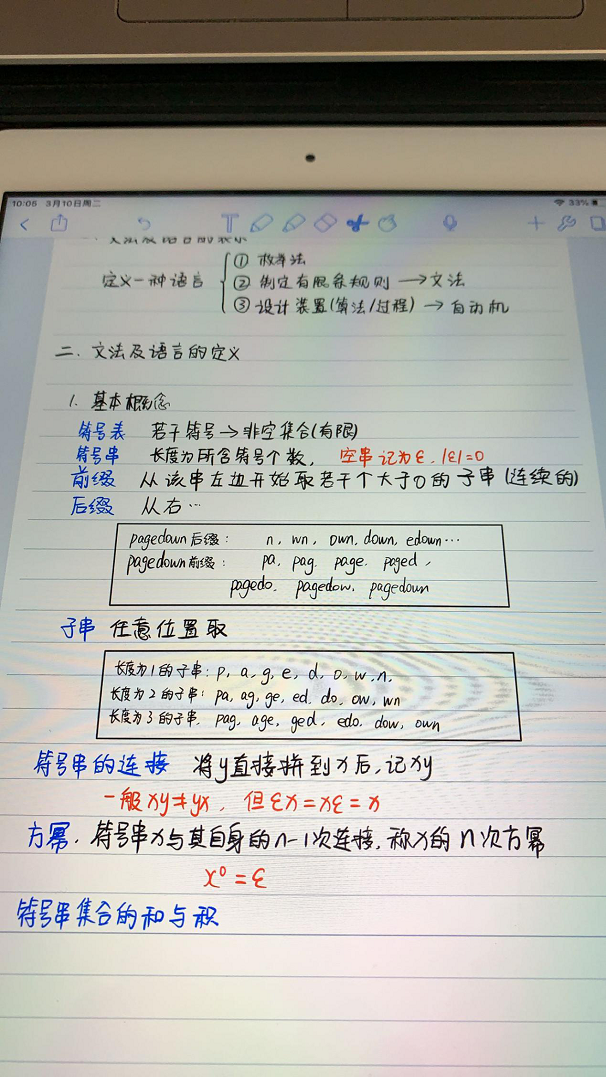 10:05 3月10日周二
33%
文法及语言的表示
① 枚举法
定义一种语言 ② 制定有限条规则 → 文法
③ 设计装置(算法/过程) → 自动机
二. 文法及语言的定义
1. 基本概念
符号表 若干符号→非空集合(有限)
符号串 长度为所含符号个数, 空串记为ε, |ε|=0
前缀 从该串左边开始取若干个大于0的子串(连续的)
后缀 从右…
pagedown后缀: n, wn, own, down, edown…
pagedown前缀: pa, pag, page, paged,
pagedo, pagedow, pagedown
子串 任意位置取
长度为1的子串: p, a, g, e, d, o, w, n,
长度为2的子串: pa, ag, ge, ed, do, ow, wn
长度为3的子串, pag, age, ged, edo, dow, own
符号串的连接 将y直接拼到x后, 记xy
一般xy≠yx, 但εx=xε=x
方幂. 符号串x与其自身的n-1次连接, 称x的n次方幂
x⁰=ε
符号串集合的和与积